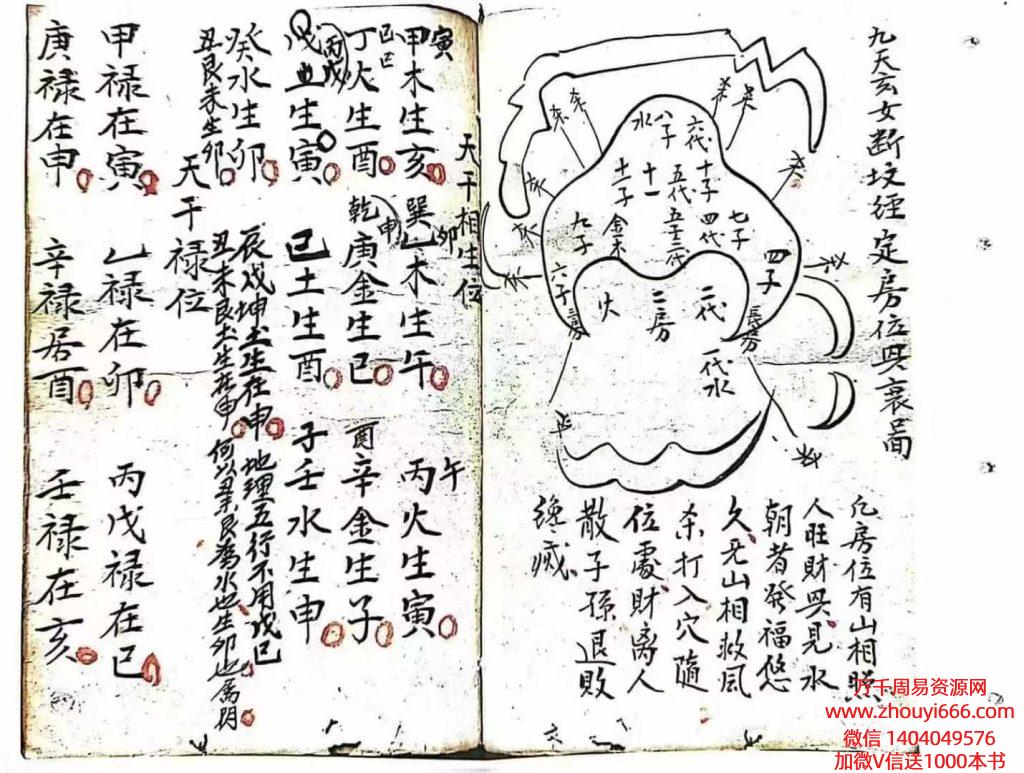 九天玄女断坟经定房位兴衰图
凡房位有山相照
人旺财兴见水
朝者发福悠
久无山相救风
杀打入穴随
位处财离人
散子孙退败
八子
水
六代
十子
四代
七子
四子
长房
五代
五子三代
十一
土子
金木
九子
六子
三房
火
二房
二代
一代水
杀
杀
天干相生位
寅
甲木生亥
巽
卯
乙木生午
午
丙火生寅
丁火生酉
乾
申
庚金生巳
酉
辛金生子
丙戊
戊土生寅
己土生酉
子
壬水生申
癸水生卯
丑艮未生卯
辰戌坤土生在申
地理五行不用戊己
丑未艮土生在申
何以丑未艮为水也生卯也为阴
天干禄位
甲禄在寅
乙禄在卯
丙戊禄在巳
庚禄在申
辛禄居酉
壬禄在亥
万千周易资源网
www.zhouyi666.com
微信 1404049576
加微V信送1000本书